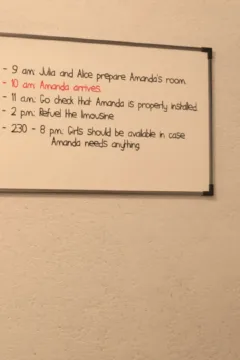 - 9 a.m.: Julia and Alice prepare Amanda's room.
- 10 am: Amanda arrives.
- 11 a.m.: Go check that Amanda is properly installed.
- 2 p.m.: Refuel the limousine
- 2:30 - 8 p.m.: Girls should be available in case
Amanda needs anything.